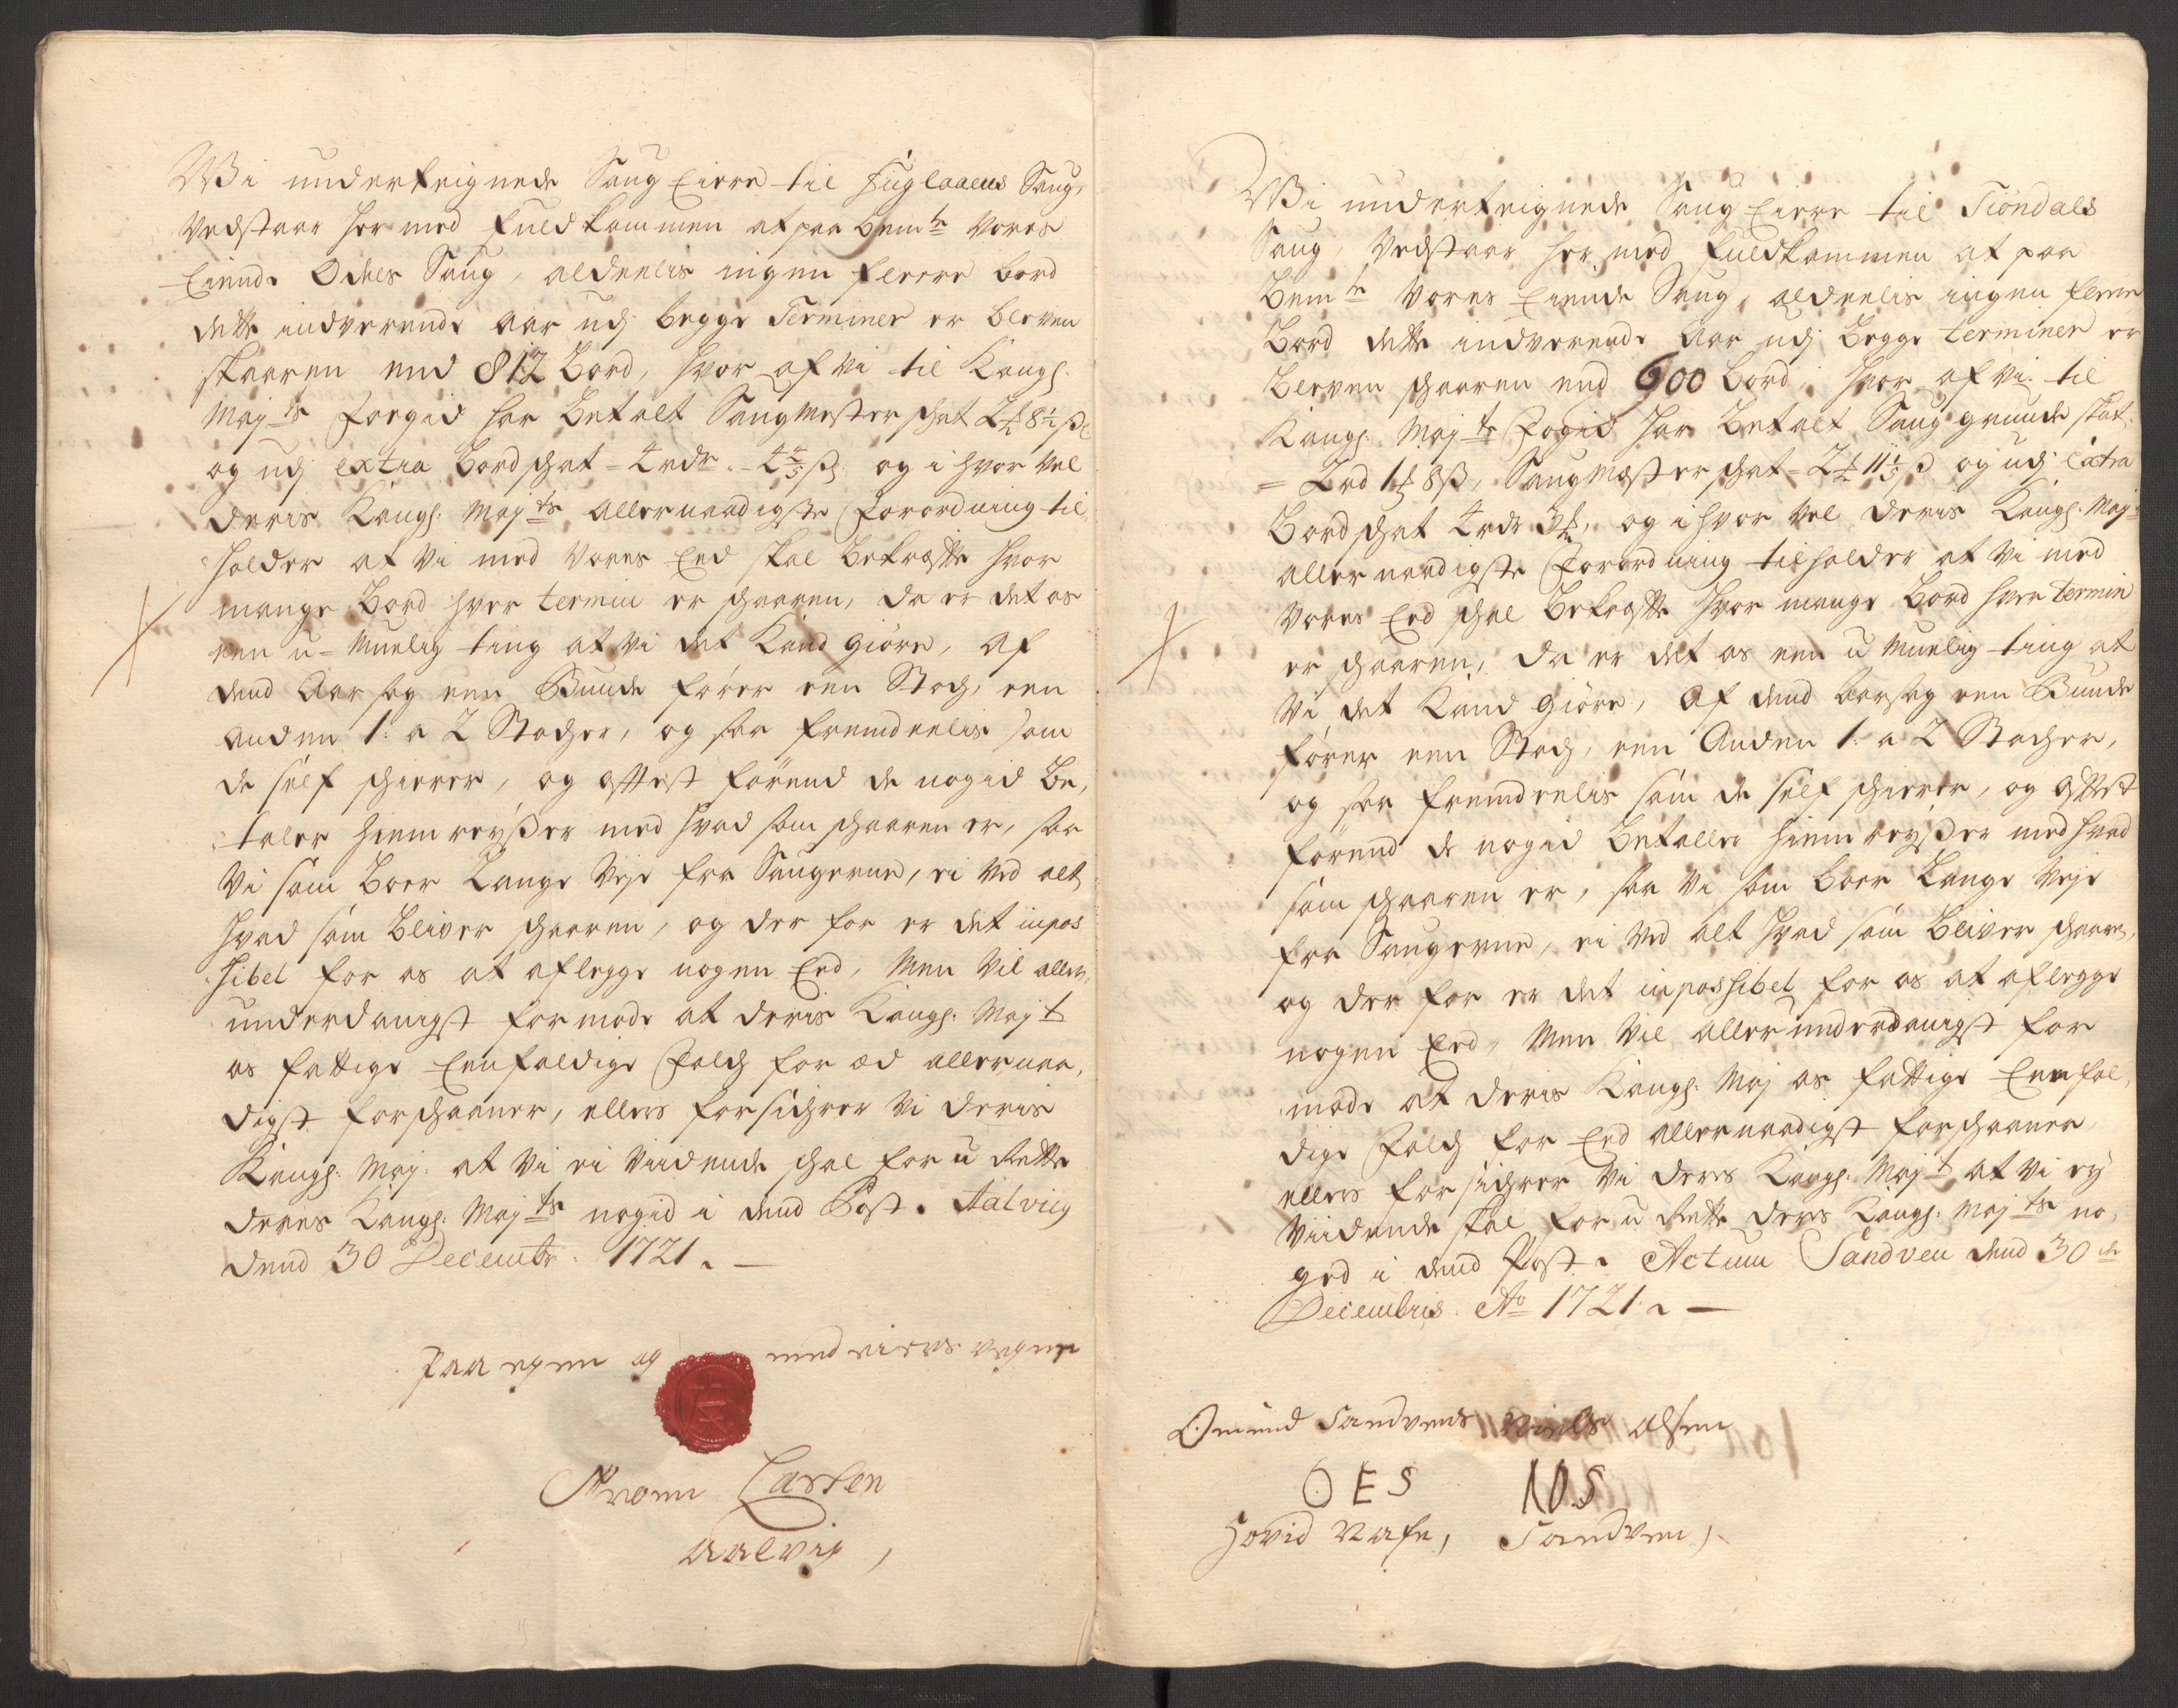 Wi underteignede Saug Eiere til Fuglaaens Saug,
Vedstaar her med fuldkommen at paa bemte vores
Eiende Odels Saug, aldeelis ingen fleere bord
dette indverende aar udj begge Terminer er bleven
skaaren end 812 Bord, hvor af vi til Kongl.
Majts Foegid har betalt Saugmesterschat
og udj extra bordschat og i hvor vel
deris Kongl. Majts allernaadigste Forordning til,
holder at vi med vores Eed skal bekræfte hvor
mange Bord hver termin er schaaren, da er det os
een u-muelig ting at vi det Kand giøre, Af
dend Aarsag een Bunde fører een Stoch, een
anden 1. a 2 Stocher, og saa fremdeelis som
de self schierer, og oftest førend de nogid be,
taler hiemreyßer med hvad som schaaren er, saa
Vi som Boer Lange Veje fra Saugerne, ei ved alt
hvad som bliver schaaren, og der for er det inpos
sibel for os at aflegge nogen Eed, Men vil aller,
underdanigst formode at deris Kongl. Majt
os fattige Eenfoldige Folch for æd allernaa,
digst forschaaner, ellers forsichrer vi deris
Kongl. Maj. at vi ei viidende schal for u Rette
deres Kongl. Majts nogid i dend Post. Aalvig
dend 30 Decembr. 1721.
Paa egen og med eiers vegne
Larsen
Aalvig,
Wi underteignede Saug Eiere til Tiøndals
Saug, Vedstaar her med fuldkommen at paa
Bemte Vores Eiende Saug, aldeelis ingen fleere
Bord dette indverende Aar udj Begge terminer er
bleven schaaren end 600 Bord, hvor af vi til
Kongl. Majts Fogid har Betalt Saug grunde skat,
2 rd 1 8 ß, Saugmesterschat og udj Extra
Bordschat og i hvor vel deris Kongl. Maj
allernaadigste Forordning tilholder at vi med
Vores Eed schal Bekræfte hvor mange Bord hver termin
er schaaren, da er det os een u muelig ting at
Vi det Kand giøre, Af dend Aarsag een Bunde
fører een Stoch, een Anden 1. a 2 Stocher,
og saa fremdeelis som de self schierer, og oftest
førend de nogid Betaller hiemreyßer med hvad
som schaaren er, saa Vi som boer Lange Veje
fra Saugerne, ei ved alt hvad som Bliver schaaren,
og der for er det inpossibel for os at aflegge
nogen Eed, Men Vil allerunderdanigst for
mode at deris Kongl. Maj os fattige Eenfol,
dige Folch for Eed allernaadigst forschaaner,
ellers forsichrer Vi deres Kongl. Majt at vi ey
Viidende skal for u Rette deres Kongl. Majts no,
ged i dend Post. Actum Sandven dend 30 de
Decembris Ao 1721.
Omund Sandvens Niels Olsen
O E S NOS
Sandven,